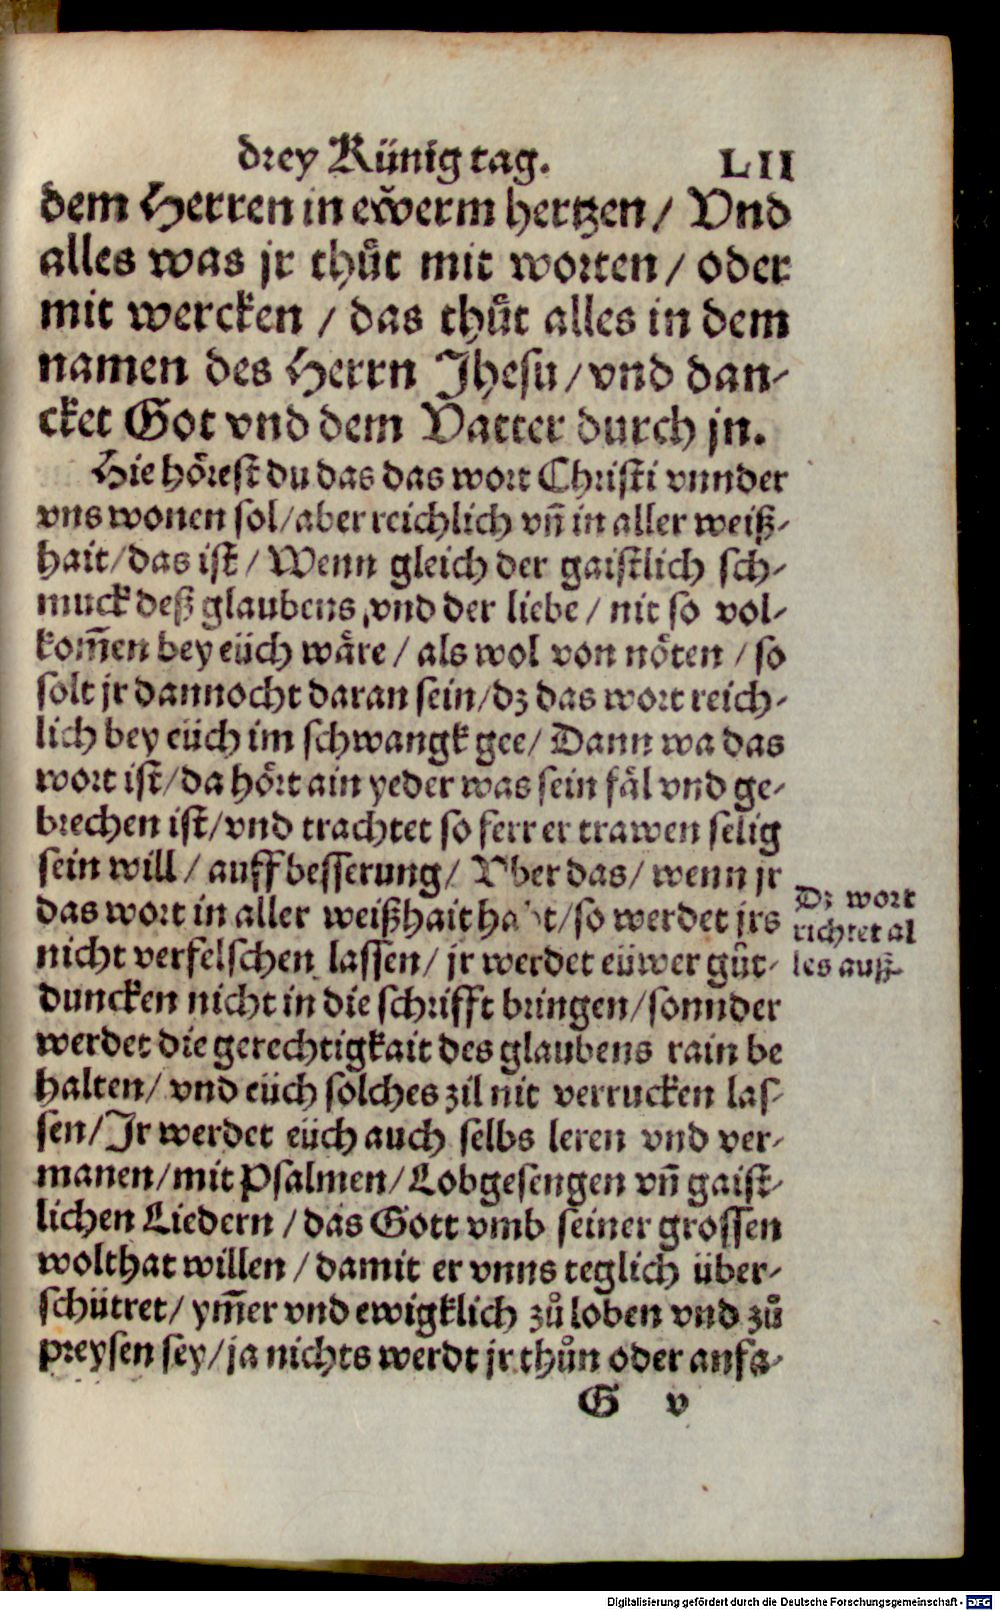 drey Künig tag. LII
dem Herren in eẅerm hertzen/ Vnd
alles was jr thůt mit worten/ oder
mit wercken / das thůt alles in dem
namen des Herrn Jhesu/ vnd dan-
cket Got vnd dem Vatter durch jn.
Hie hörest du das das wort Christi vnnder
vns wonen sol/ aber reichlich vñ in aller weiß-
hait/ das ist/ Wenn gleich der gaistlich sch-
muck deß glaubens, vnd der liebe/ nit so vol-
kom̃en bey eüch wäre/ als wol von nöten / so
solt jr dannocht daran sein/ dz das wort reich-
lich bey eüch im schwangk gee/ Dann wa das
wort ist/ da hört ain yeder was sein fäl vnd ge-
brechen ist/ vnd trachtet so ferr er trawen selig
sein will / auff besserung/ Vber das/ wenn jr
das wort in aller weißhait habt/ so werdet jrs
nicht verfelschen lassen/ jr werdet eüwer gůt-
duncken nicht in die schrifft bringen/ sonnder
werdet die gerechtigkait des glaubens rain be
halten/ vnd eüch solches zil nit verrucken las-
sen/ Jr werdet eüch auch selbs leren vnd ver-
manen/ mit Psalmen/ Lobgesengen vñ gaist-
lichen Liedern / das Gott vmb seiner grossen
wolthat willen / damit er vnns teglich über-
schütret/ ym̃er vnd ewigklich zů loben vnd zů
preysen sey/ ja nichts werdt jr thůn oder anfa-
G v
Dz wort
richtet al
les auß.
Digitalisierung gefördert durch die Deutsche Forschungsgemeinschaft - DFG